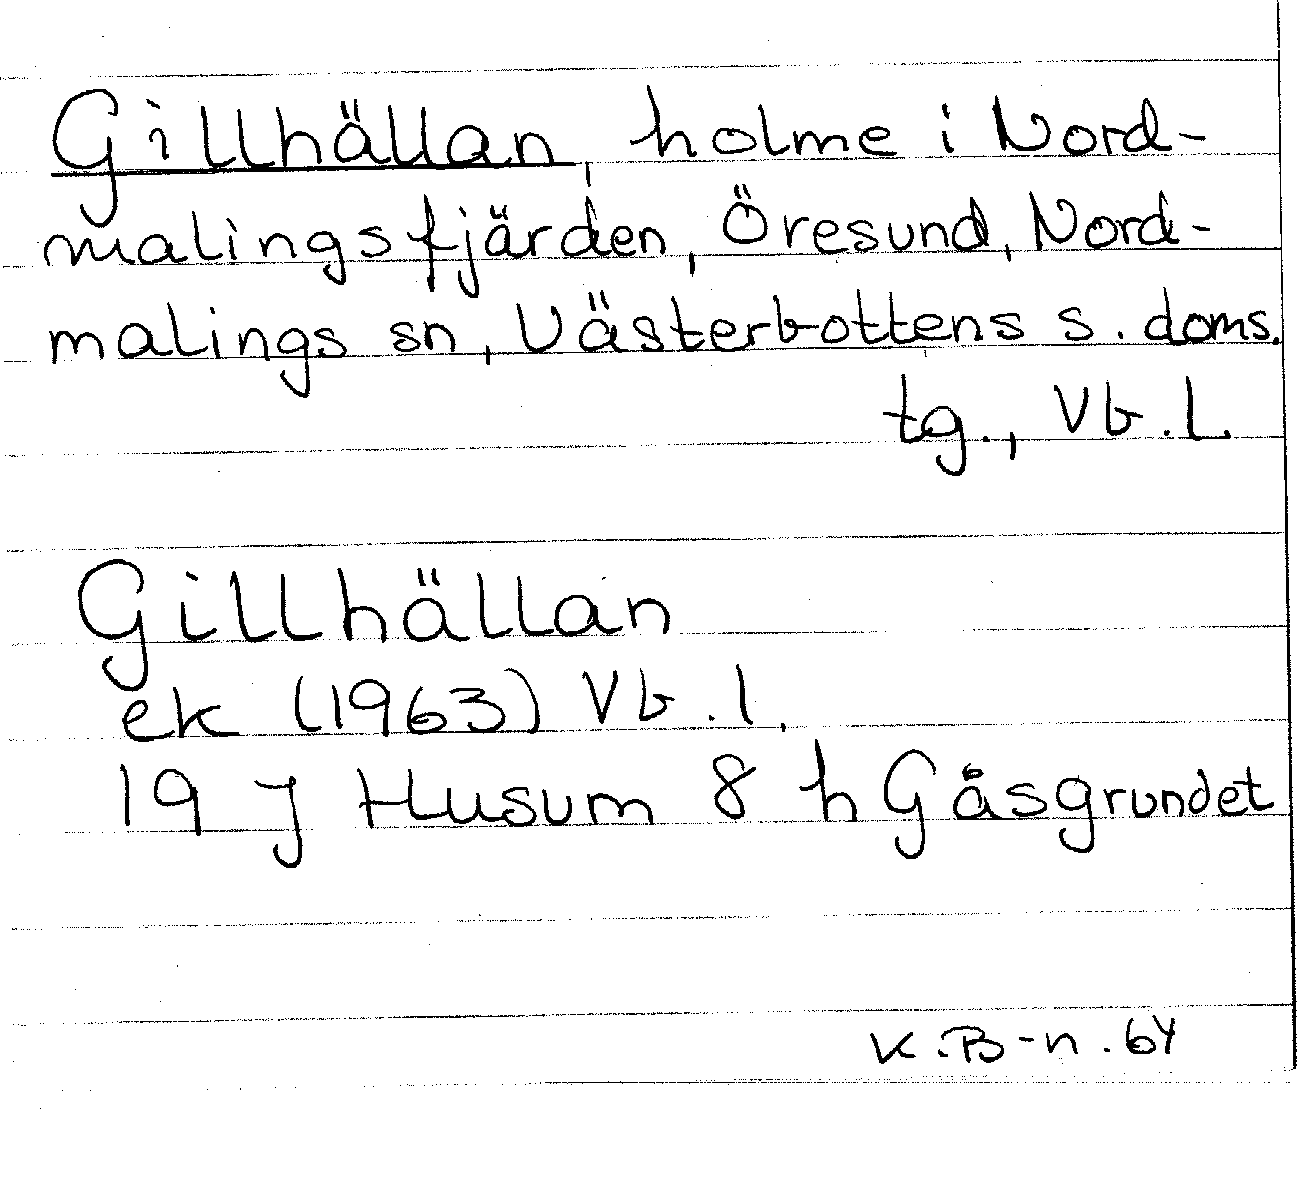 Gillhällan, holme i Nord-
malingsfjärden, Öresund, Nord-
malings sn, Västerbottens s. doms.
tg., Vb. L.
Gillhällan
ek (1963) Vb. l.
19 J Husum 8 h Gåsgrundet
K.B-n. 64